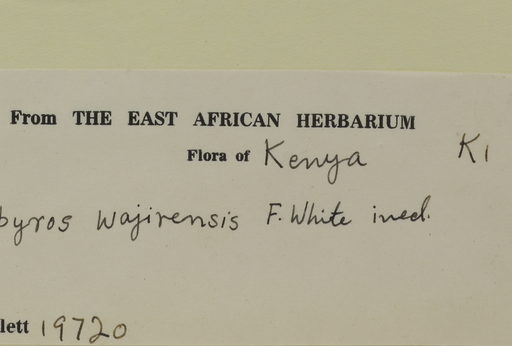 From THE EAST AFRICAN HERBARIUM
Flora of Kenya K1
pyros wajirensis F. White ined.
lett 19720